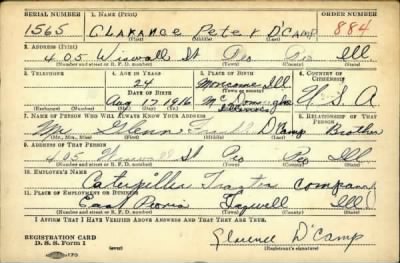 SERIAL NUMBER 1. NAME (Print) ORDER NUMBER
1565 CLARANCE Peter D'CAMP 884
(First) (Middle) (Last)
2. ADDRESS (Print)
405 Wiswall St Peo Peo Ill.
(Number and street or R. F. D. number) (Town) (County) (State)
3. TELEPHONE 4. AGE IN YEARS 5. PLACE OF BIRTH 6. COUNTRY OF CITIZENSHIP
24
DATE OF BIRTH (Town or county)
Aug 17 1916 Illinois U. S. A
(Exchange) (Number) (Mo.) (Day) (Yr.) (State or country)
7. NAME OF PERSON WHO WILL ALWAYS KNOW YOUR ADDRESS 8. RELATIONSHIP OF THAT PERSON
Mr. Glenn D'Camp Brother
(Mr., Mrs., Miss) (First) (Middle) (Last)
9. ADDRESS OF THAT PERSON
405 Wiswall St Peo Peo Ill
(Number and street or R. F. D. number) (Town) (County) (State)
10. EMPLOYER'S NAME
Caterpillar Tractor Company
11. PLACE OF EMPLOYMENT OR BUSINESS
East Peoria Tazwell Ill
(Number and street or R. F. D. number) (Town) (County) (State)
I AFFIRM THAT I HAVE VERIFIED ABOVE ANSWERS AND THAT THEY ARE TRUE.
REGISTRATION CARD
D. S. S. Form 1 Clarence D'Camp
(Registrant's signature)